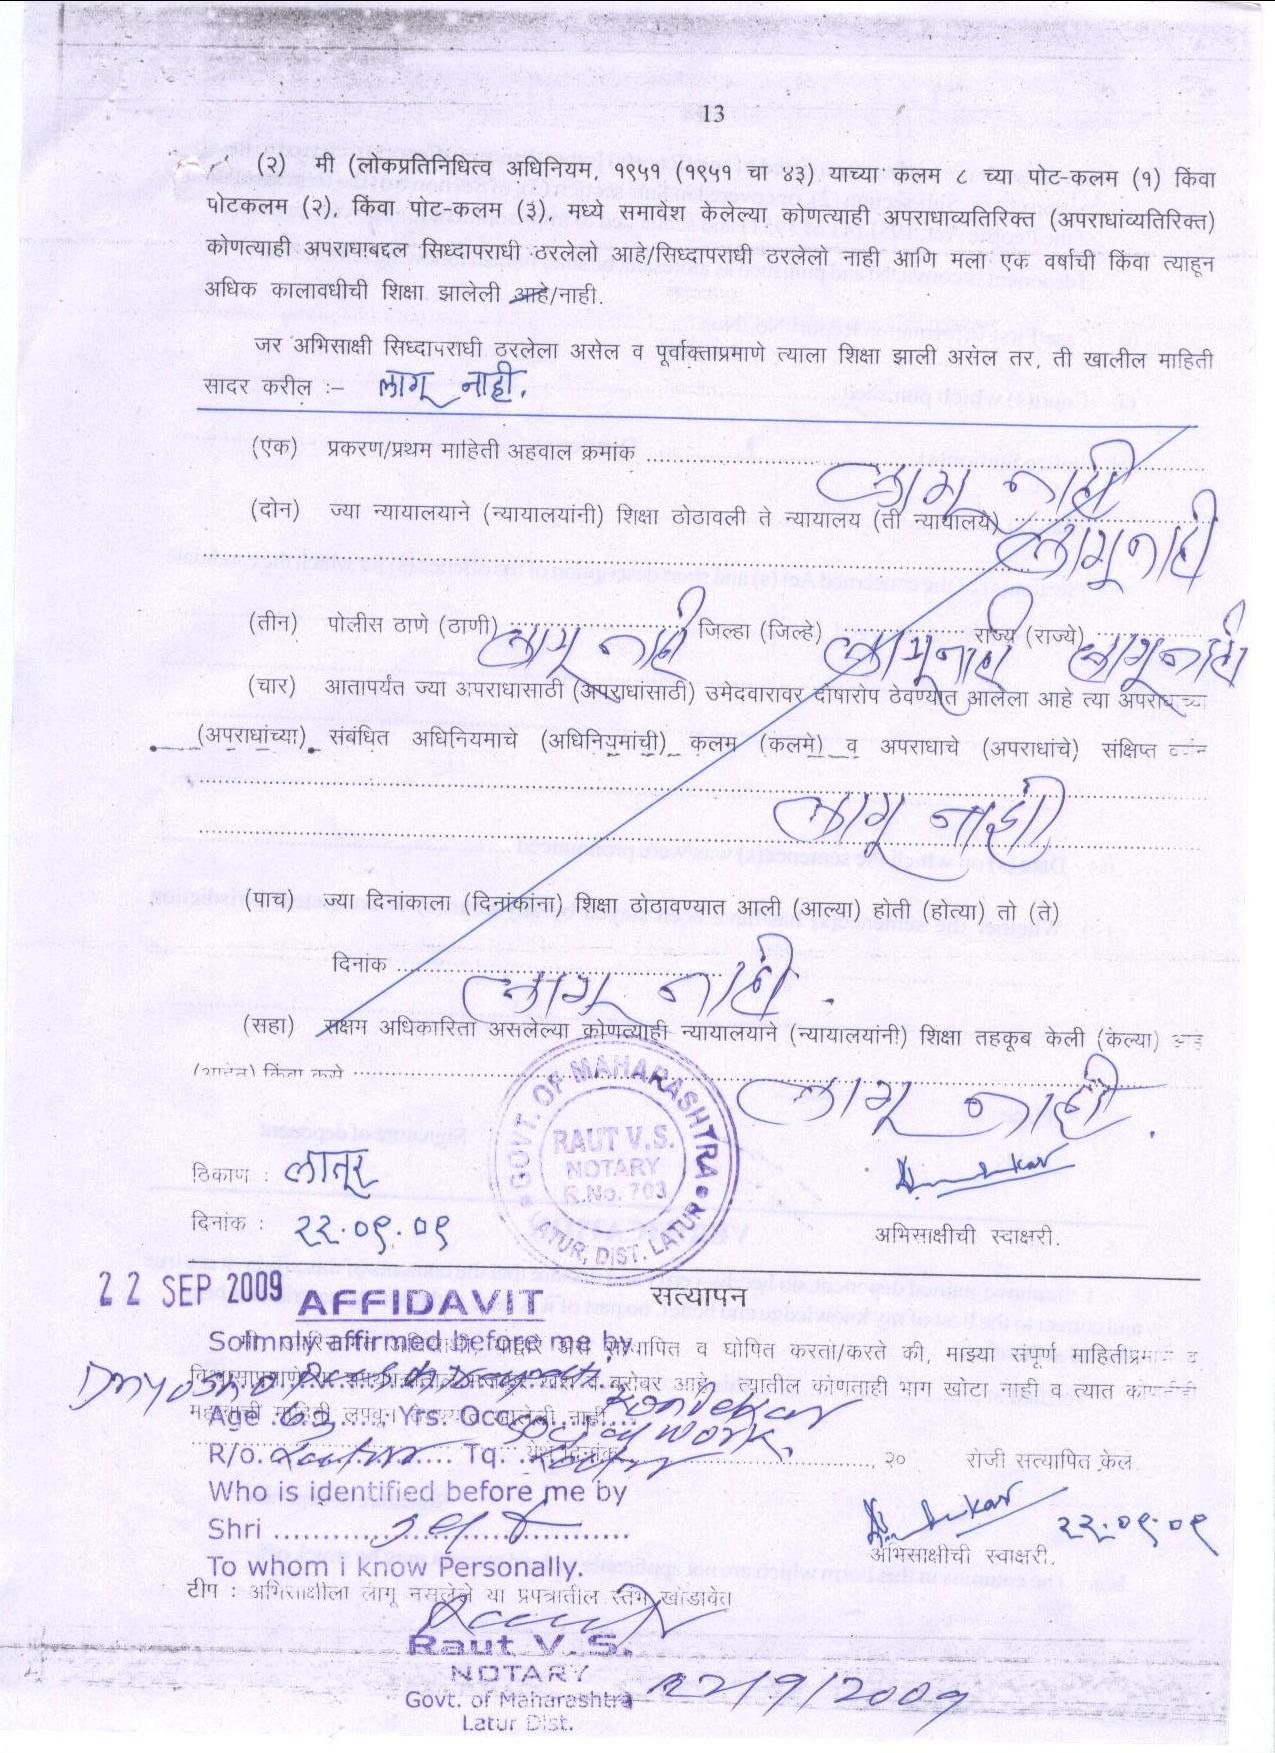 13
(२) मी (लोकप्रतिनिधित्व अधिनियम, १९५१ (१९५१ चा ४३) याच्या कलम ८ च्या पोट-कलम (१) किंवा
पोटकलम (२), किंवा पोट-कलम (३), मध्ये समावेश केलेल्या कोणत्याही अपराधाव्यतिरिक्त (अपराधांव्यतिरिक्त)
कोणत्याही अपराधाबद्दल सिध्दापराधी ठरलेलो आहे/सिध्दापराधी ठरलेलो नाही आणि मला एक वर्षाची किंवा त्याहून
अधिक कालावधीची शिक्षा झालेली आहे/नाही.
जर अभिसाक्षी सिध्दापराधी ठरलेला असेल व पूर्वोक्ताप्रमाणे त्याला शिक्षा झाली असेल तर, ती खालील माहिती
सादर करील :- लागू नाही.
(एक) प्रकरण/प्रथम माहिती अहवाल क्रमांक ........ लागू नाही
(दोन) ज्या न्यायालयाने (न्यायालयांनी) शिक्षा ठोठावली ते न्यायालय (ती न्यायालये) ........
लागू नाही
(तीन) पोलीस ठाणे (ठाणी) ........ जिल्हा (जिल्हे) ........ राज्य (राज्ये) ........
लागू नाही लागू नाही लागू नाही
(चार) आतापर्यंत ज्या अपराधासाठी (अपराधांसाठी) उमेदवारावर दोषारोप ठेवण्यात आलेला आहे त्या अपराधाच्या
(अपराधांच्या) संबंधित अधिनियमाचे (अधिनियमांची) कलम (कलमे) व अपराधाचे (अपराधांचे) संक्षिप्त वर्णन
लागू नाही
(पाच) ज्या दिनांकाला (दिनांकांना) शिक्षा ठोठावण्यात आली (आल्या) होती (होत्या) तो (ते)
दिनांक ........ लागू नाही.
(सहा) सक्षम अधिकारिता असलेल्या कोणत्याही न्यायालयाने (न्यायालयांनी) शिक्षा तहकूब केली (केल्या) आहे
(आहेत) किंवा कसे ........ लागू नाही.
GOVT. OF MAHARASHTRA
RAUT V.S.
NOTARY
R.No. 703
LATUR, DIST. LATUR
ठिकाण : लातूर
दिनांक : २२.०९.०९
अभिसाक्षीची स्वाक्षरी.
22 SEP 2009
AFFIDAVIT
सत्यापन
Solmnly affirmed before me by
सत्यापित व घोषित करतो/करते की, माझ्या संपूर्ण माहितीप्रमाणे व
बरोबर आहे. त्यातील कोणताही भाग खोटा नाही व त्यात कोणतीही
महत्वाची माहिती लपवून आलेली नाही
Age 63 Yrs. Occ. Social work.
R/o. Latur Tq. Latur
येथे दिनांक ........, २० रोजी सत्यापित केले.
Who is identified before me by
Shri ........ self
To whom i know Personally.
२२.०९.०९
अभिसाक्षीची स्वाक्षरी.
टीप : अभिसाक्षीला लागू नसलेले या प्रपत्रातील स्तंभ खोडावेत
Raut V.S.
NOTARY
Govt. of Maharashtra
Latur Dist.
22/9/2009